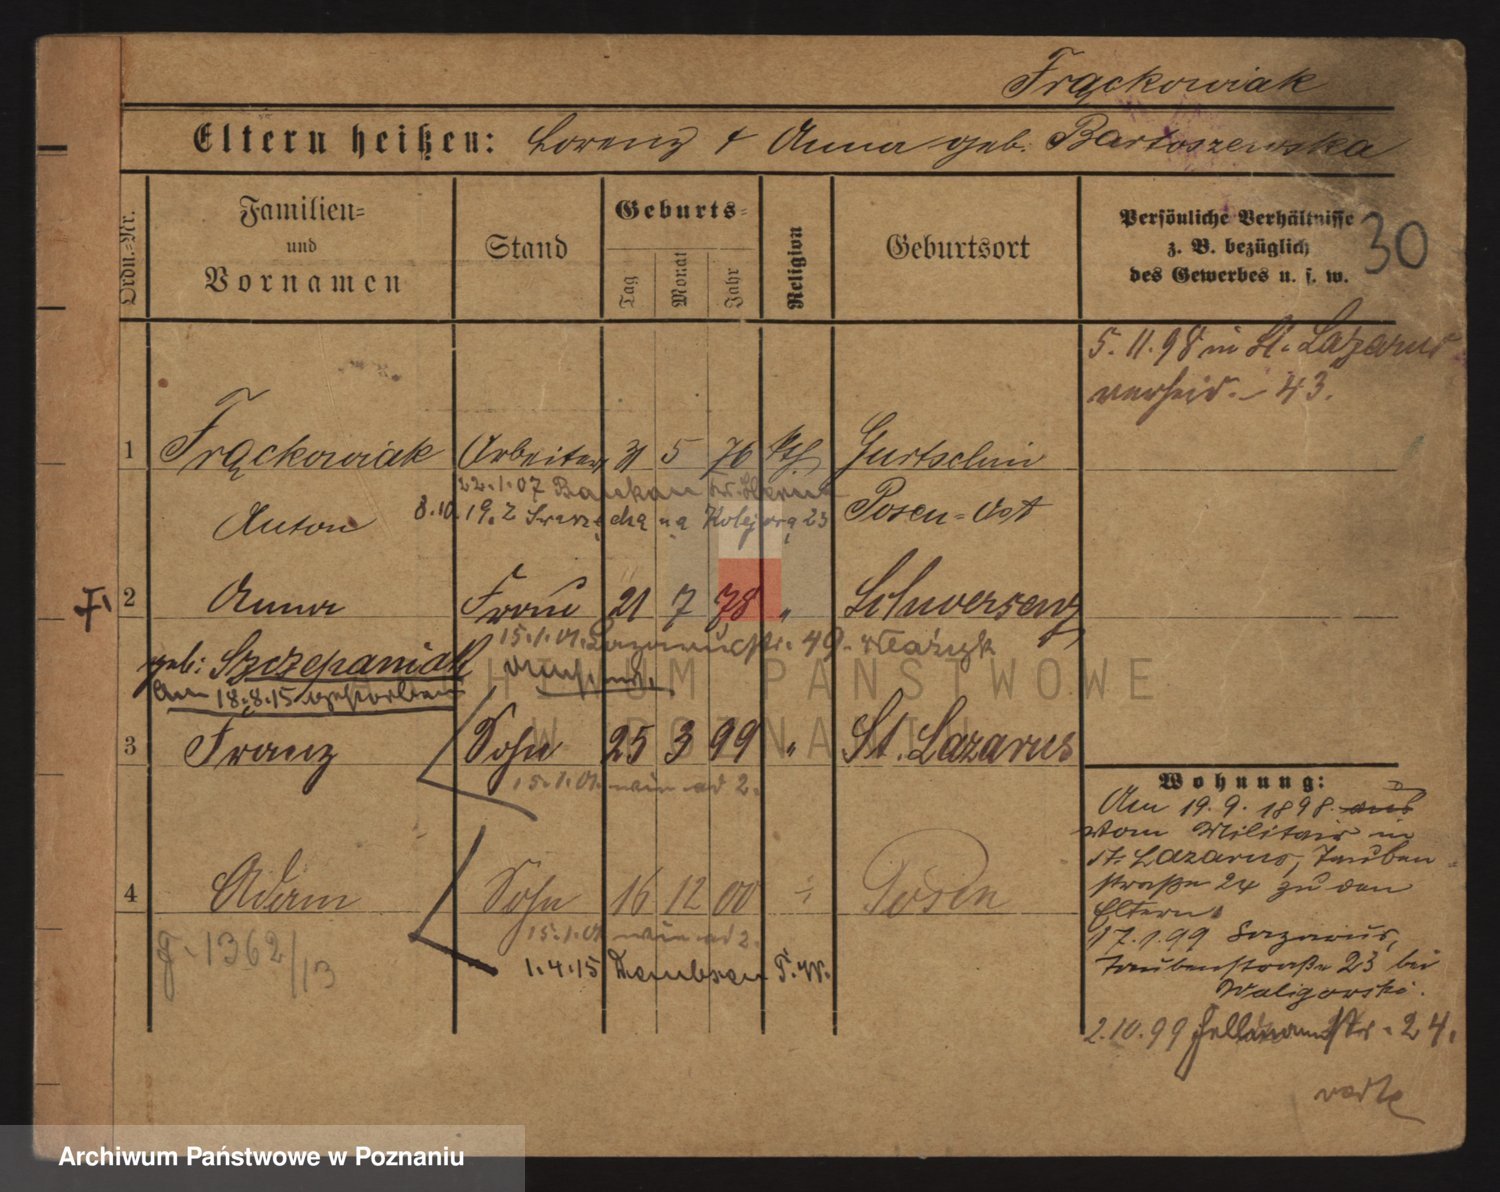 Frąckowiak
Eltern heißen: Lorenz & Anna geb. Bartoszewska
Ordn.-Nr.
Familien- und Vornamen
Stand
Geburts-
Tag Monat Jahr
Religion
Geburtsort
Persönliche Verhältnisse
z. B. bezüglich
des Gewerbes u. s. w.
30
5.11.98 in St. Lazarus
verheir. - 43.
1 Frąckowiak Arbeiter 31 5 76 kth Gurtschin
22.1.07
Anton 8.10.19. Z na Kolejową 23 Posen-Ost
2 Anna Frau 21 7 78 " Schwersenz
15.1.01. Lazarusstr. 49.
geb: Szczepaniak
Am 18.8.15 gestorben
3 Franz Sohn 25 3 99 " St. Lazarus
15.1.01. wie ad 2.
4 Adam Sohn 16 12 00 Posen
15.1.01 wie ad 2.
1.4.15 Dembsen
1362/13
Wohnung:
Am 19.9.1898 aus
vom Militair in
St. Lazarus, Tauben-
straße 24 zu den
Eltern
17.1.99 Lazarus,
Taubenstraße 23 bei
Waligorski.
2.10.99 24.
ARCHIWUM PAŃSTWOWE
W POZNANIU
Archiwum Państwowe w Poznaniu